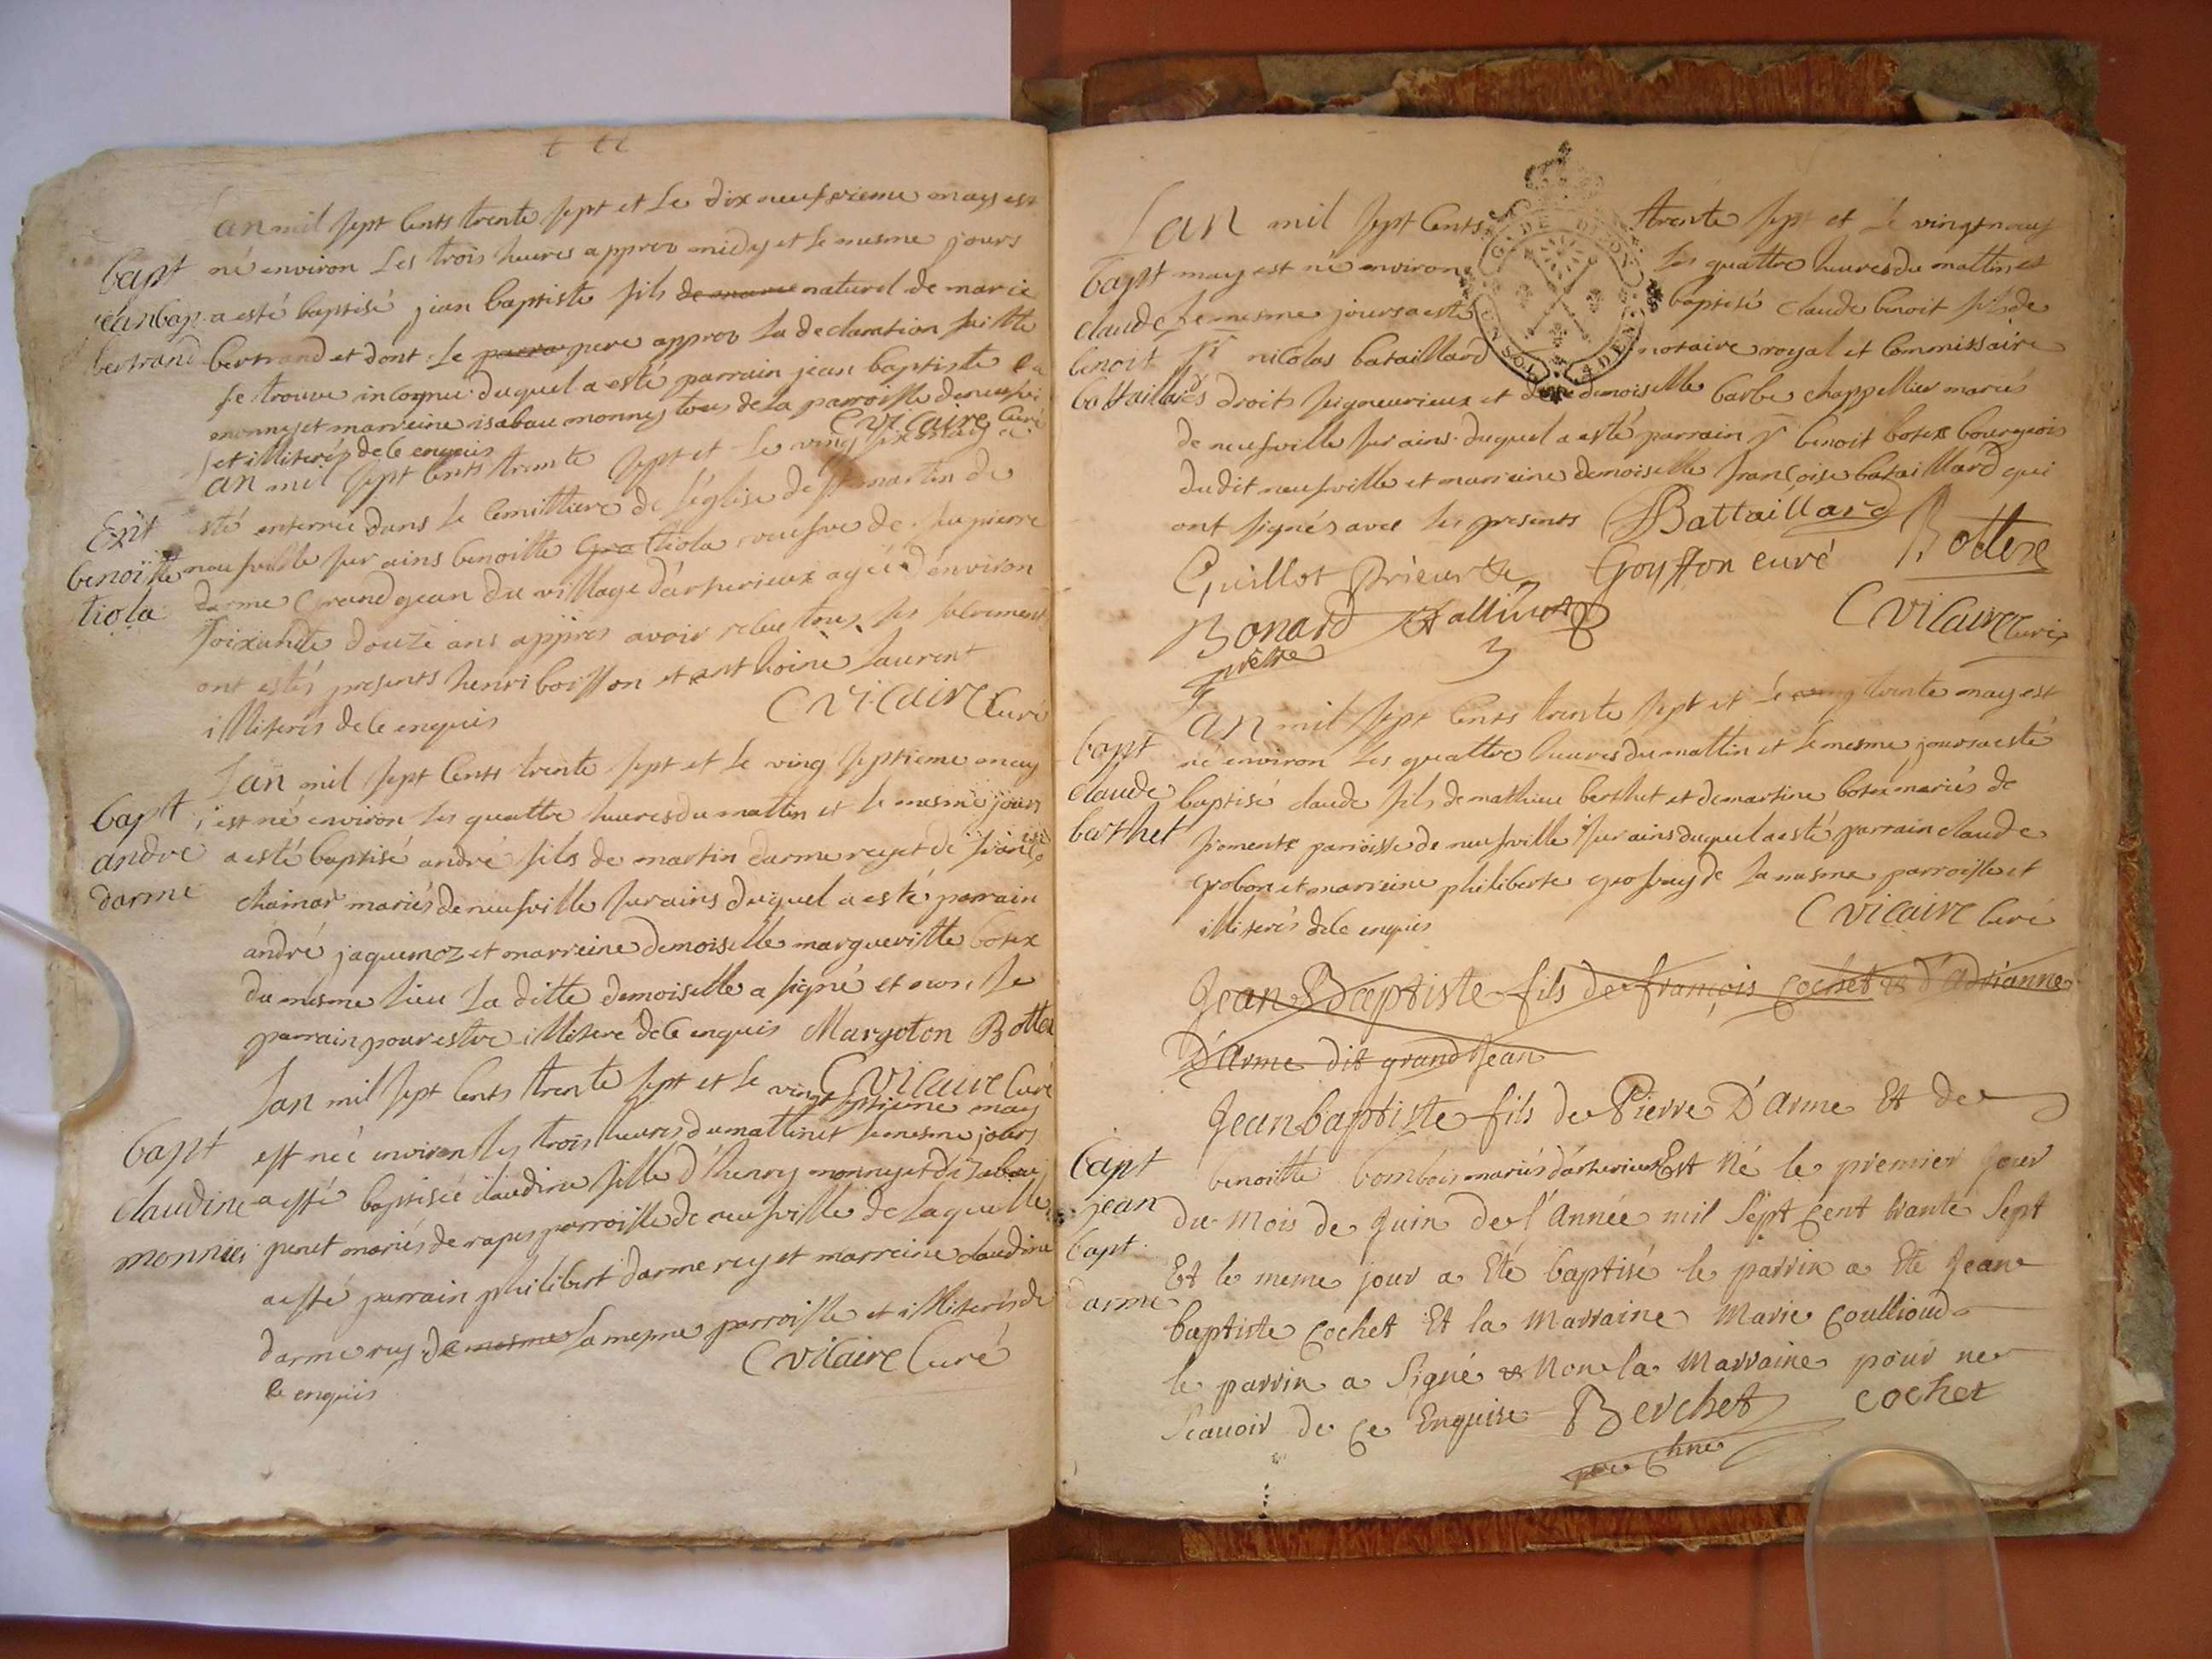 an mil sept cents trente sept et le dix neufvieme may est
bapt né environ les trois heures appres midy et le mesme jours
jean bap. a esté baptisé jean baptiste fils de marie naturel de marie
bertrand bertrand et dont le pere appres la declaration faitte
se trouve incognu duquel a esté parrain jean baptiste
monney et marreine isabau monney tous de la parroisse de neufvi
et illiterés de ce enquis C vicaire Curé
an mil sept cents trente sept et le ving six may a
Ent esté enterrée dans le cemittiere de l'église de st martin de
benoitte neufville sur ains benoitte tiola veufve de feu pierre
tiola darme Grandgean du village d'artherieux agée d'environ
soixante douze ans appres avoir receu tous les sacrements
ont estés presents henri boisson et anthoine laurent
illiterés de ce enquis C vicaire Curé
Lan mil sept cents trente sept et le ving septieme may
bapt est né environ les quattre heures du mattin et le mesme jours
andre a esté baptisé andré fils de martin darmerey et de
darme chainar mariés de neufville sur ains duquel a esté parrain
andré jaquemoz et marreine demoiselle margueritte botex
du mesme lieu la ditte demoiselle a signé et non le
parrain pour estre illiteré de ce enquis Margoton Bottex
C vicaire Curé
Lan mil sept cents trente sept et le vingt septieme may
bapt est née environ les trois heures du mattin et le mesme jours
claudine a esté baptisée claudine fille d'henry monney et d'izabeau
monnier penet mariés de rapes parroisse de neufville de laquelle
a esté parrain philibert darmerey et marreine claudine
darmerey de mesme la mesme parroisse et illiterés de
ce enquis C vicaire Curé
Lan mil sept cents trente sept et le vingt neuf
bapt may est né environ les quattre heures du mattin et
claude le mesme jours a esté baptisé claude benoit fils de
benoit sr nicolas bataillard notaire royal et commissaire
battaillard es droits seigneurieux et de demoiselle barbe chappellier mariés
de neufville sur ains duquel a esté parrain sr benoit botex bourgeois
dudit neufville et marreine demoiselle francoise bataillard qui
ont signés avec les presents Battaillard
Guillot Prieur & Goyffon curé Bottex
Bonard C vicaire Curé
prêtre
an mil sept cents trente sept et le ving trente may est
bapt né environ les quattre heures du mattin et le mesme jours a esté
claude baptisé claude fils de mathieu berthet et de martine botex mariés de
berthet fromente parroisse de neufville sur ains duquel a esté parrain claude
grobon et marreine philiberte de la mesme parroisse et
illiterés de ce enquis C vicaire Curé
Jean Baptiste fils de françois Cochet & d'adrianne
D'arme dit grand Jean
Jean baptiste fils de Pierre D'arme Et de
bapt benoitte bombois mariés d'artherieux Est Né le premier Jour
jean du Mois de Juin de l'Année mil Sept Cent trante Sept
bapt. Et le meme jour a Eté baptisé le parrin a Eté Jean
darme baptiste Cochet Et la Marraine Marie Coullioud
le parrin a Signé & Non la Marraine pour ne
Scauoir de Ce Enquise Berchet Cochet